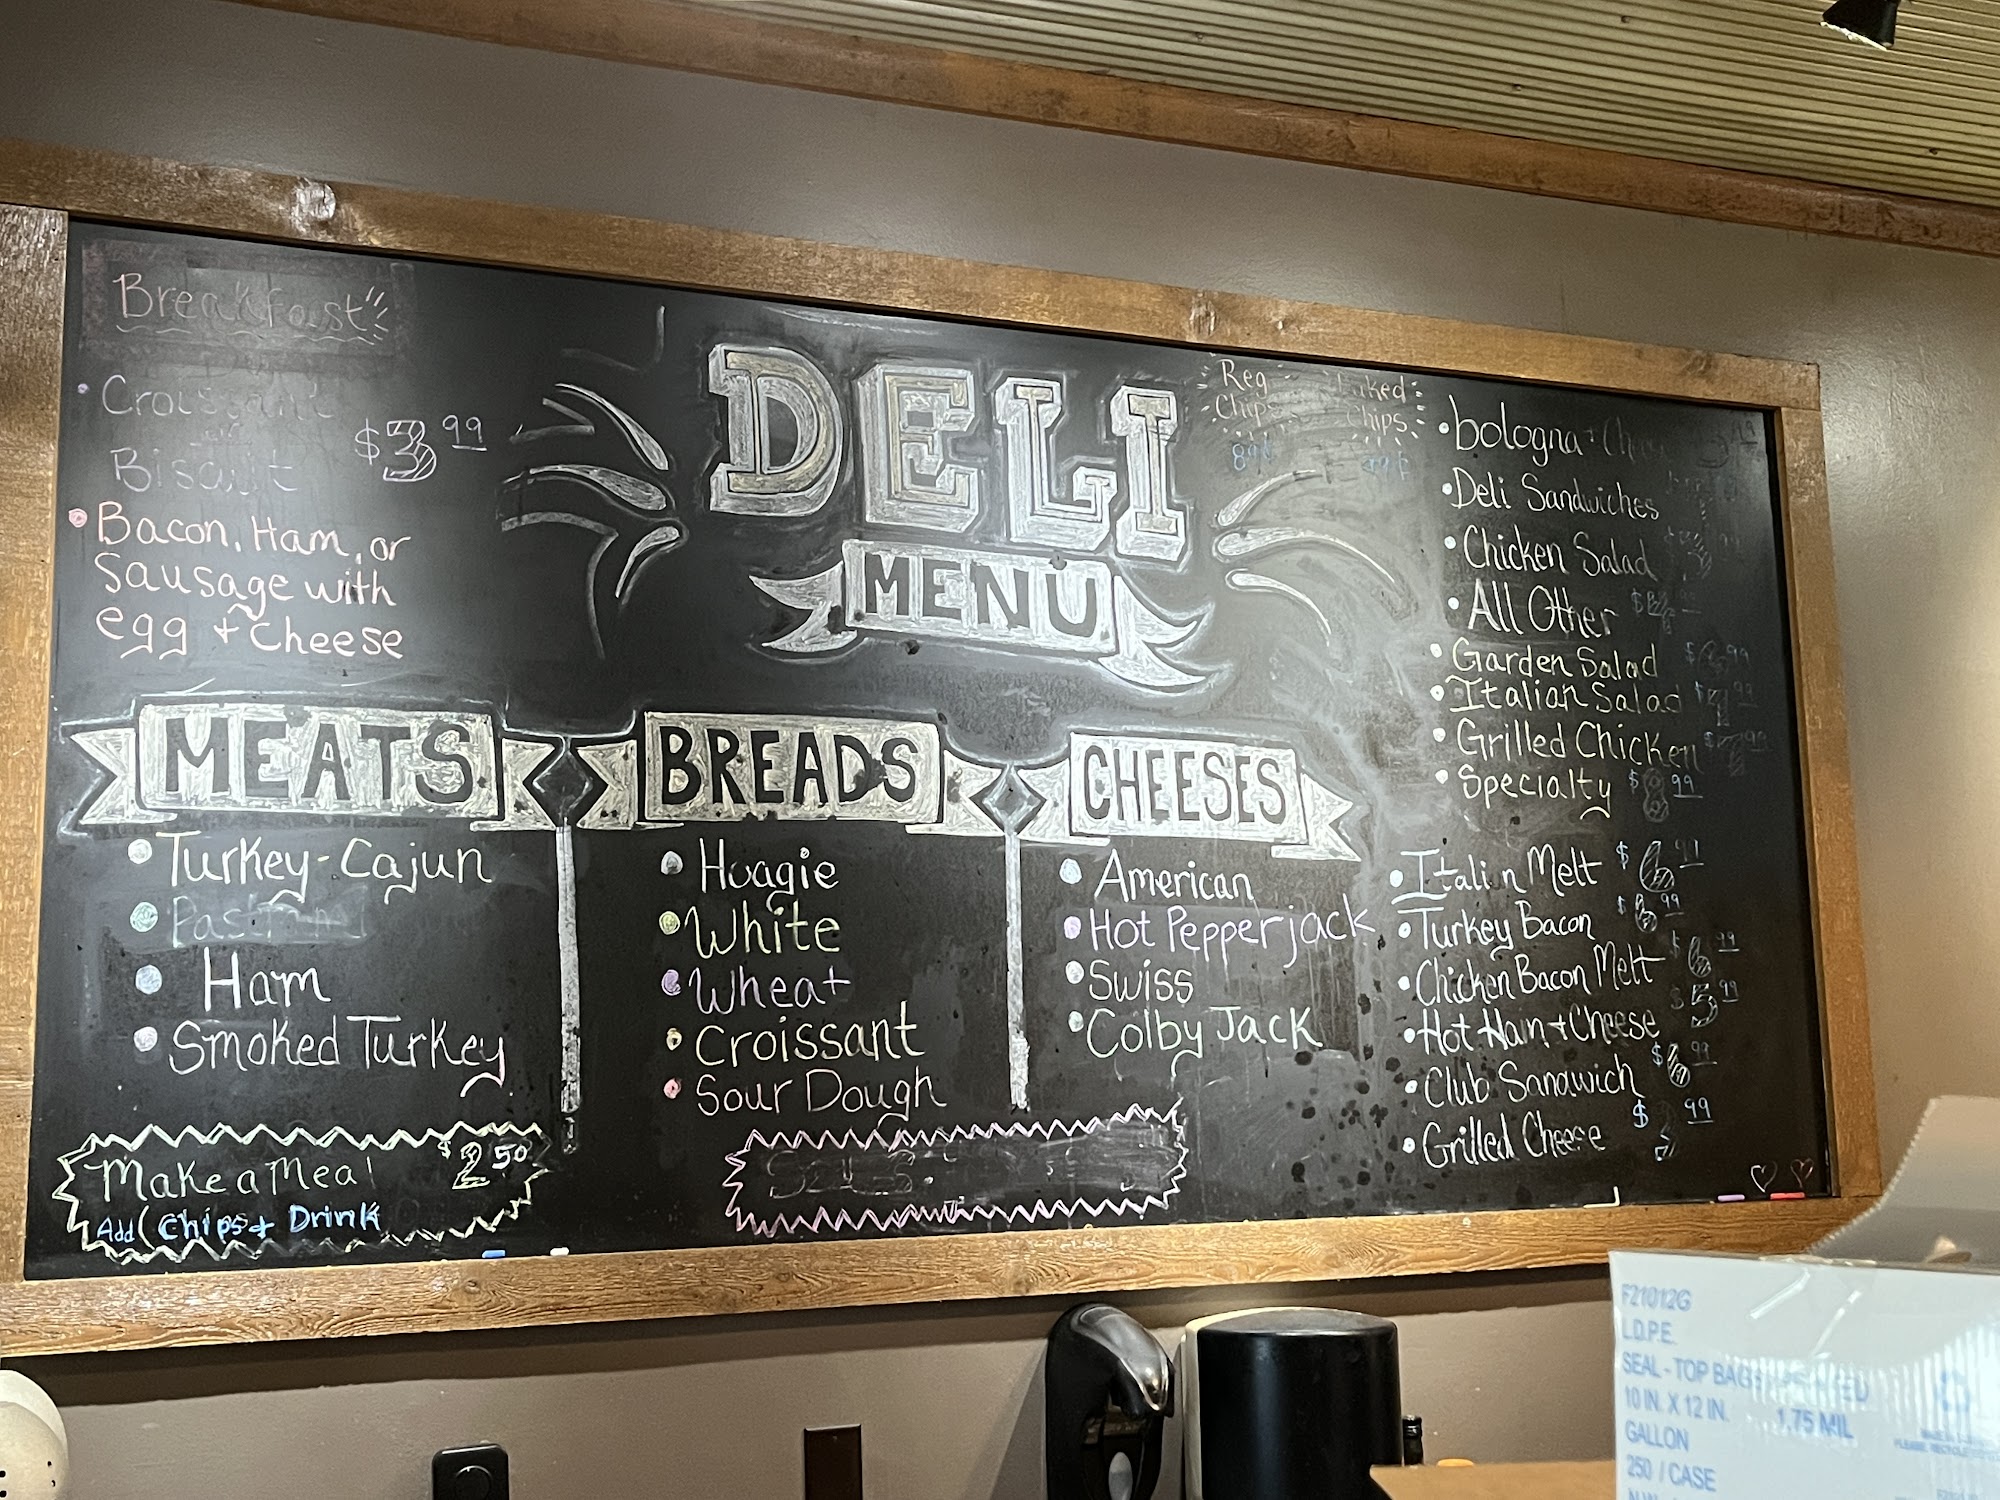 Breakfast
Croissant
Biscuit
$3.99
Bacon, Ham, or
Sausage with
egg + Cheese
DELI
MENU
Reg
Chips
89¢
Chips
MEATS
Turkey-Cajun
Ham
Smoked Turkey
BREADS
Hoagie
White
Wheat
Croissant
Sour Dough
CHEESES
American
Hot Pepperjack
Swiss
Colby Jack
Make a Meal $2.50
Add (Chips + Drink
bologna +
Deli Sandwiches
Chicken Salad
All Other
Garden Salad
Italian Salad
Grilled Chicken
Specialty $8.99
Melt
Turkey Bacon $6.99
Chicken Bacon Melt $6.99
Hot Ham + Cheese $5.99
Club Sandwich $6.99
Grilled Cheese
F21012G
L.D.P.E.
SEAL-TOP BAG
10 IN. X 12 IN. 1.75 MIL
GALLON
250 / CASE